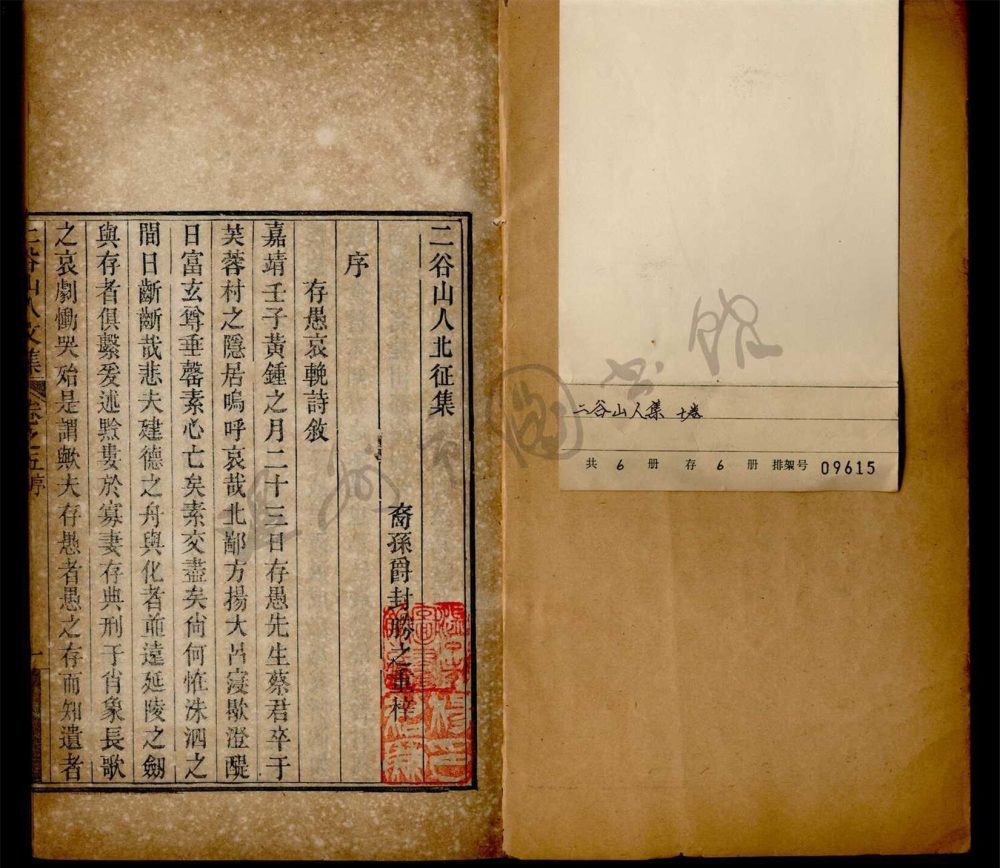 二谷山人北征集
裔孫爵封勝之重梓
序
存愚哀輓詩敘
嘉靖壬子黃鍾之月二十三日存愚先生蔡君卒于
芙蓉村之隱居嗚呼哀哉北鄙方揚大呂寖歇澄醍
日富玄尊垂罄素心亡矣素交盡矣尙何惟洙泗之
間日齗齗哉悲夫建德之舟與化者並遠延陵之劒
與存者俱繫爰述黔婁於寡妻存典刑于肖象長歌
之哀劇慟哭殆是謂歟夫存愚者愚之存而知遺者
二谷山人文集
卷之五序
一
二谷山人集
共 6 册 存 6 册 排架号 09615